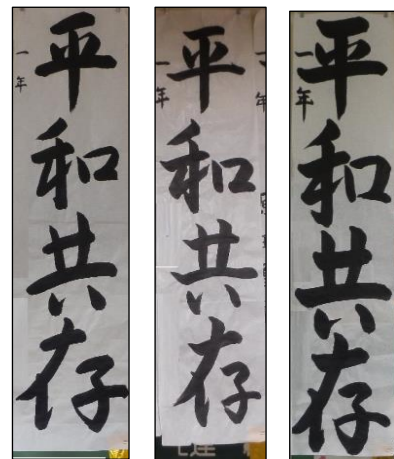 平和共存
一年
平和共存
一年
平和共存
一年